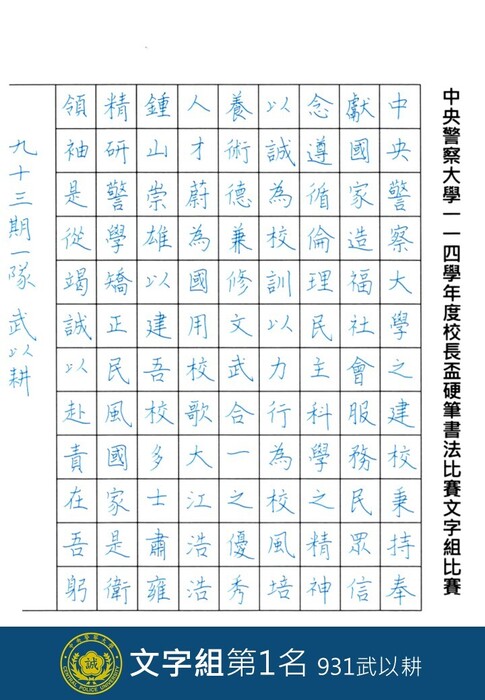 中央警察大學一一四學年度校長盃硬筆書法比賽文字組比賽
中央警察大學之建校秉持奉
獻國家造福社會服務民眾信
念遵循倫理民主科學之精神
以誠為校訓以力行為校風培
養術德兼修文武合一之優秀
人才蔚為國用校歌大江浩浩
鍾山崇雄以建吾校多士肅雍
精研警學矯正民風國家是衛
領袖是從竭誠以赴責在吾躬
九十三期一隊 武以耕
中央警察大學
誠
CENTRAL POLICE UNIVERSITY
文字組第1名 931武以耕